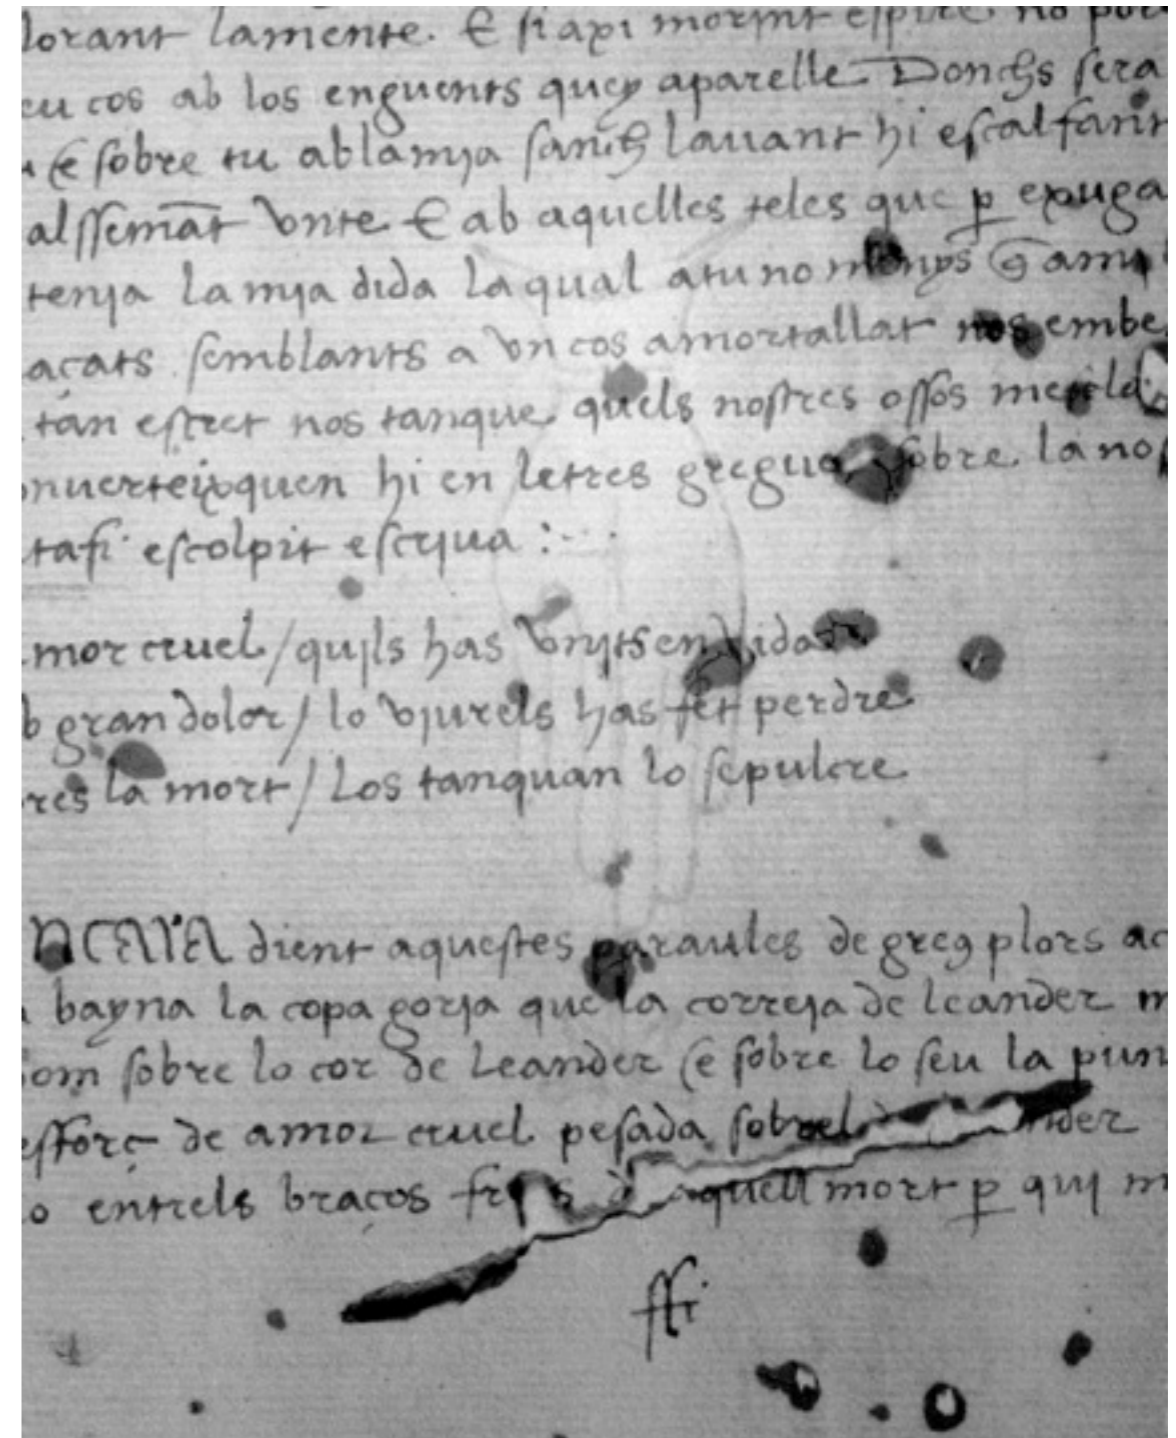 lorant lamente. E si axi morint espire no por
eu cos ab los enguents quey aparelle Donchs sera
E sobre tu ablamia sanch lauant hi escalfant
alssemāt vnte E ab aquelles teles que p exuga
tenia la mia dida la qual atu no menys amj
açats semblants a vn cos amortallat nos embe
tan estret nos tanque quels nostres ossos mescle
nuerteixquen hi en letres gregues sobre la nos
tafi escolpit escriua :~
mor cruel / quils has vnits en vida
b gran dolor / lo viurels has fet perdre
res la mort / Los tanquan lo sepulcre
ncara dient aquestes paraules de greg plors ac
bayna la copa gorja que la correja de leander m
om sobre lo cor de Leander E sobre lo seu la pun
esforç de amor cruel pesada sobrel nder
o entrels braços frets d aquell mort p qui m
ffi